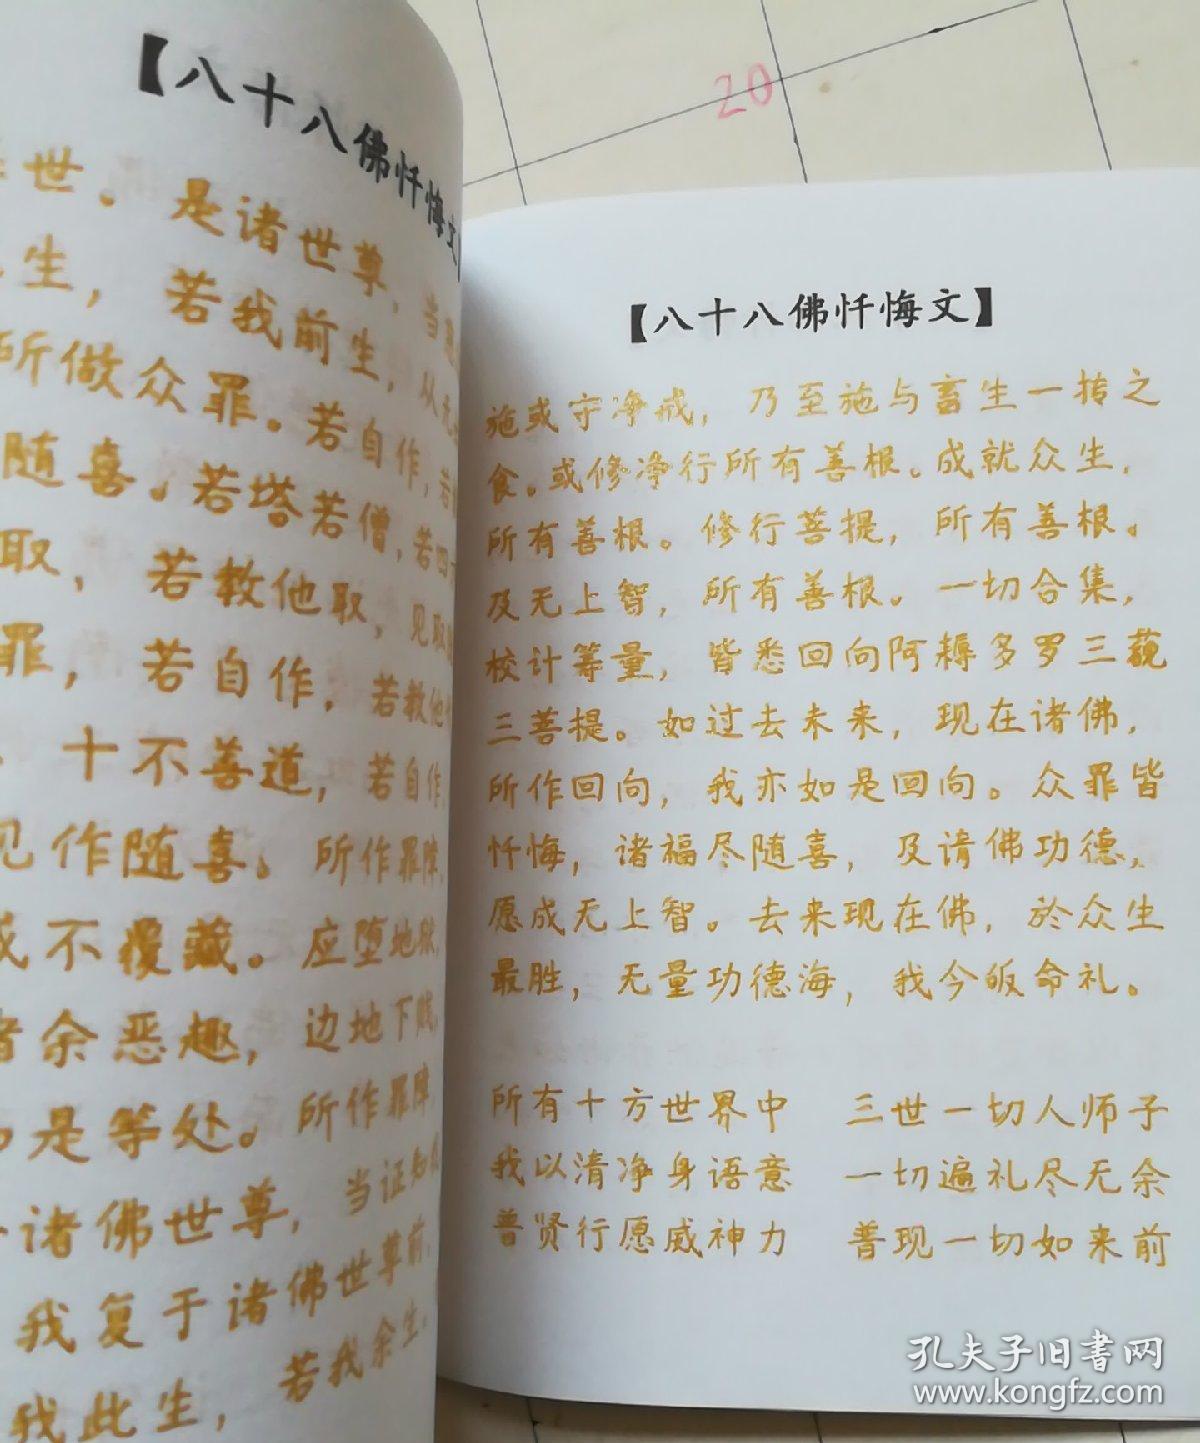 【八十八佛忏悔文】
世。是诸世尊，当
生，若我前生，从无
所做众罪。若自作，若
随喜。若塔若僧，若四
取，若教他取，见取
罪，若自作，若教他
十不善道，若自作，
见作随喜。所作罪障，
或不覆藏。应堕地狱，
诸余恶趣，边地下贱，
是等处。所作罪障，
诸佛世尊，当证知
我复于诸佛世尊前，
我此生，若我余生，
【八十八佛忏悔文】
施或守净戒，乃至施与畜生一抟之
食。或修净行所有善根。成就众生，
所有善根。修行菩提，所有善根。
及无上智，所有善根。一切合集，
校计筹量，皆悉回向阿耨多罗三藐
三菩提。如过去未来，现在诸佛，
所作回向，我亦如是回向。众罪皆
忏悔，诸福尽随喜，及请佛功德，
愿成无上智。去来现在佛，於众生
最胜，无量功德海，我今皈命礼。
所有十方世界中 三世一切人师子
我以清净身语意 一切遍礼尽无余
普贤行愿威神力 普现一切如来前
20
孔夫子旧书网
www.kongfz.com